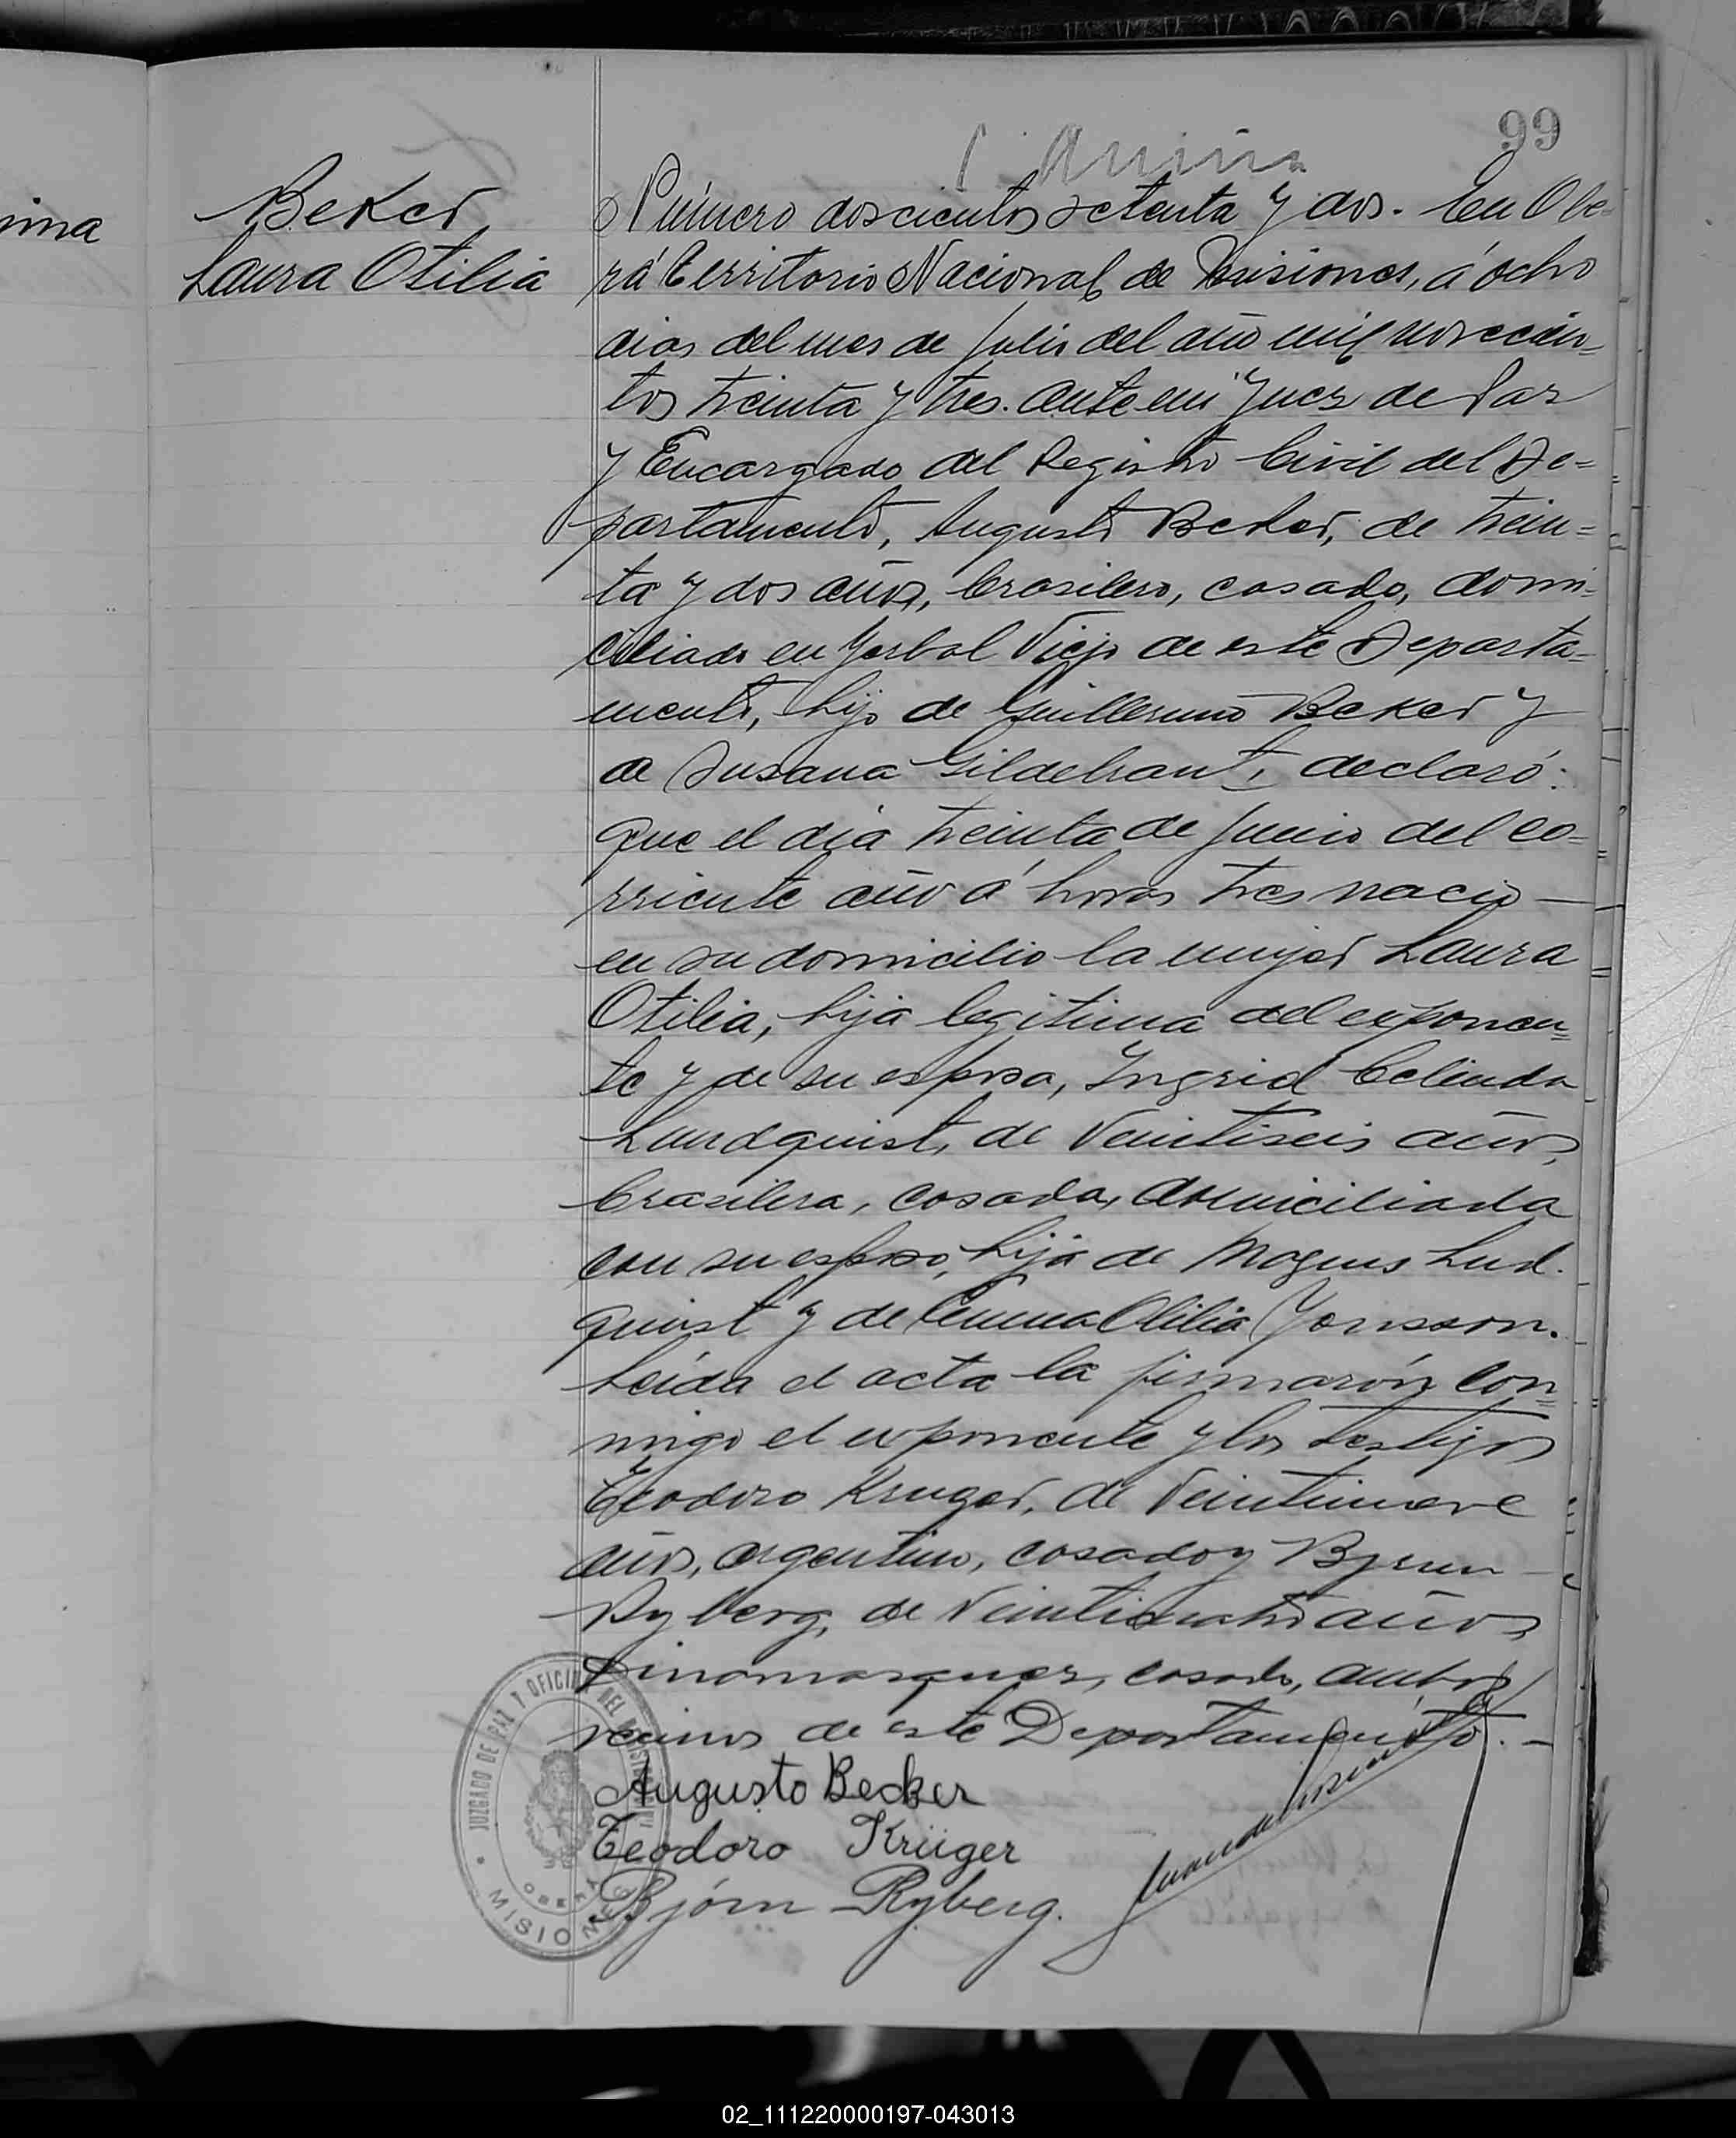 99
Beker
Laura Otilia
Número doscientos setenta y dos. En Obe-
rá Territorio Nacional de Misiones, á ocho
dias del mes de Julio del año mil novecien-
tos treinta y tres. Ante mi Juez de Paz
y Encargado del Registro Civil del De=
partamento, Augusto Beker, de trein=
ta y dos años, brasilero, casado, domi-
ciliado en Yerbal Viejo de este Departa-
mento, hijo de Guillermo Beker y
de Susana Gildebrant, declaró:
Que el día treinta de Junio del co-
rriente año á horas tres nació —
en su domicilio la mujer Laura
Otilia, hija legitima del exponen=
te y de su esposa, Ingrid Celinda
Lundquist, de veintiseis años,
brasilera, casada, domiciliada
con su esposo, hija de Magnus Lud.
quist y de Emma Otilia Yonsson.
Leída el acta la firmarón con=
migo el exponente y los testigos
Teodoro Kruger, de veintinueve
años, argentino, casado y Bjrun
Ryberg, de veinticuatro años,
Dinamarques, casado, ambos
vecinos de este Departamento. —
Augusto Becker
Teodoro Krüger
Björn Ryberg.
JUZGADO DE PAZ Y OFICINA DEL REGISTRO CIVIL
OBERÁ
MISIONES
02_111220000197-043013